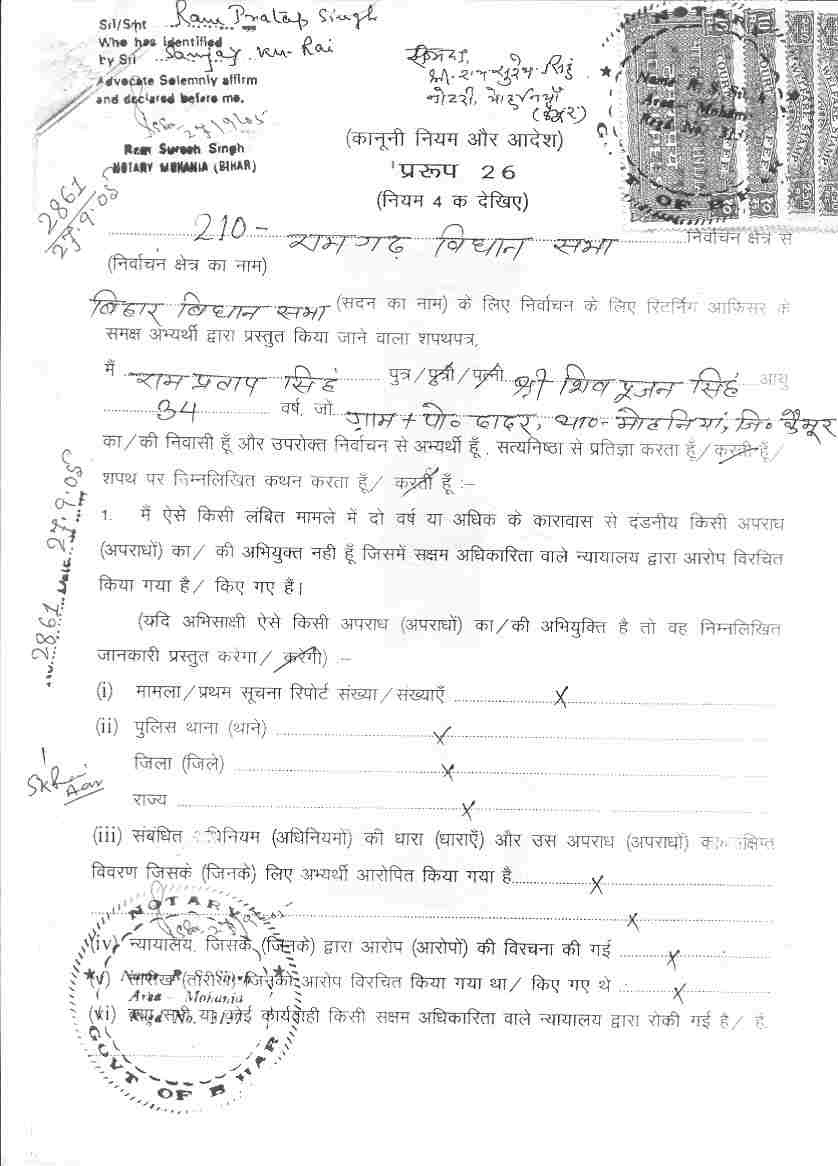 Sri/Smt Ram Pratap Singh
Who has identified
by Sri Sanjay Ku. Rai
Advocate Solemnly affirm
and declared before me.
27/9/05
Ram Suresh Singh
NOTARY MOHANIA (BIHAR)
2861
27.9.05
समक्ष,
श्री राम सुरेश सिंह
नोटरी, मोहनियाँ
(कैमूर)
NOTARY
Name R. S. Singh
Area - Mohania
Regd No.
GOVT OF BIHAR
(कानूनी नियम और आदेश)
प्ररूप 26
(नियम 4 क देखिए)
210 - रामगढ़ विधान सभा निर्वाचन क्षेत्र से
(निर्वाचन क्षेत्र का नाम)
बिहार विधान सभा (सदन का नाम) के लिए निर्वाचन के लिए रिटर्निंग आफिसर के
समक्ष अभ्यर्थी द्वारा प्रस्तुत किया जाने वाला शपथपत्र,
मैं राम प्रताप सिंह पुत्र/पुत्री/पत्नी श्री शिव पूजन सिंह आयु
34 वर्ष, जो ग्राम + पो० दादर, थाना- मोहनियां, जि० कैमूर
का/की निवासी हूँ और उपरोक्त निर्वाचन से अभ्यर्थी हूँ, सत्यनिष्ठा से प्रतिज्ञा करता हूँ/करती हूँ/
शपथ पर निम्नलिखित कथन करता हूँ/ करती हूँ :–
1. मैं ऐसे किसी लंबित मामले में दो वर्ष या अधिक के कारावास से दंडनीय किसी अपराध
(अपराधों) का/ की अभियुक्त नही हूँ जिसमें सक्षम अधिकारिता वाले न्यायालय द्वारा आरोप विरचित
किया गया है/ किए गए हैं।
(यदि अभिसाक्षी ऐसे किसी अपराध (अपराधों) का/की अभियुक्ति है तो वह निम्नलिखित
जानकारी प्रस्तुत करेगा/ करेगी) :–
2861 Date 27.9.05
(i) मामला/प्रथम सूचना रिपोर्ट संख्या/संख्याएँ X
(ii) पुलिस थाना (थाने) X
जिला (जिले) X
राज्य X
SKRai
Adv
(iii) संबंधित अधिनियम (अधिनियमों) की धारा (धाराएँ) और उस अपराध (अपराधों) का संक्षिप्त
विवरण जिसके (जिनके) लिए अभ्यर्थी आरोपित किया गया है X
X
(iv) न्यायालय, जिसके (जिनके) द्वारा आरोप (आरोपों) की विरचना की गई X
(v) तारीख (तारीखें) जिनको आरोप विरचित किया गया था/ किए गए थे X
(vi) क्या सभी या कोई कार्यवाही किसी सक्षम अधिकारिता वाले न्यायालय द्वारा रोकी गई है/ हैं
NOTARY
27/9/05
Area - Mohania
GOVT OF BIHAR